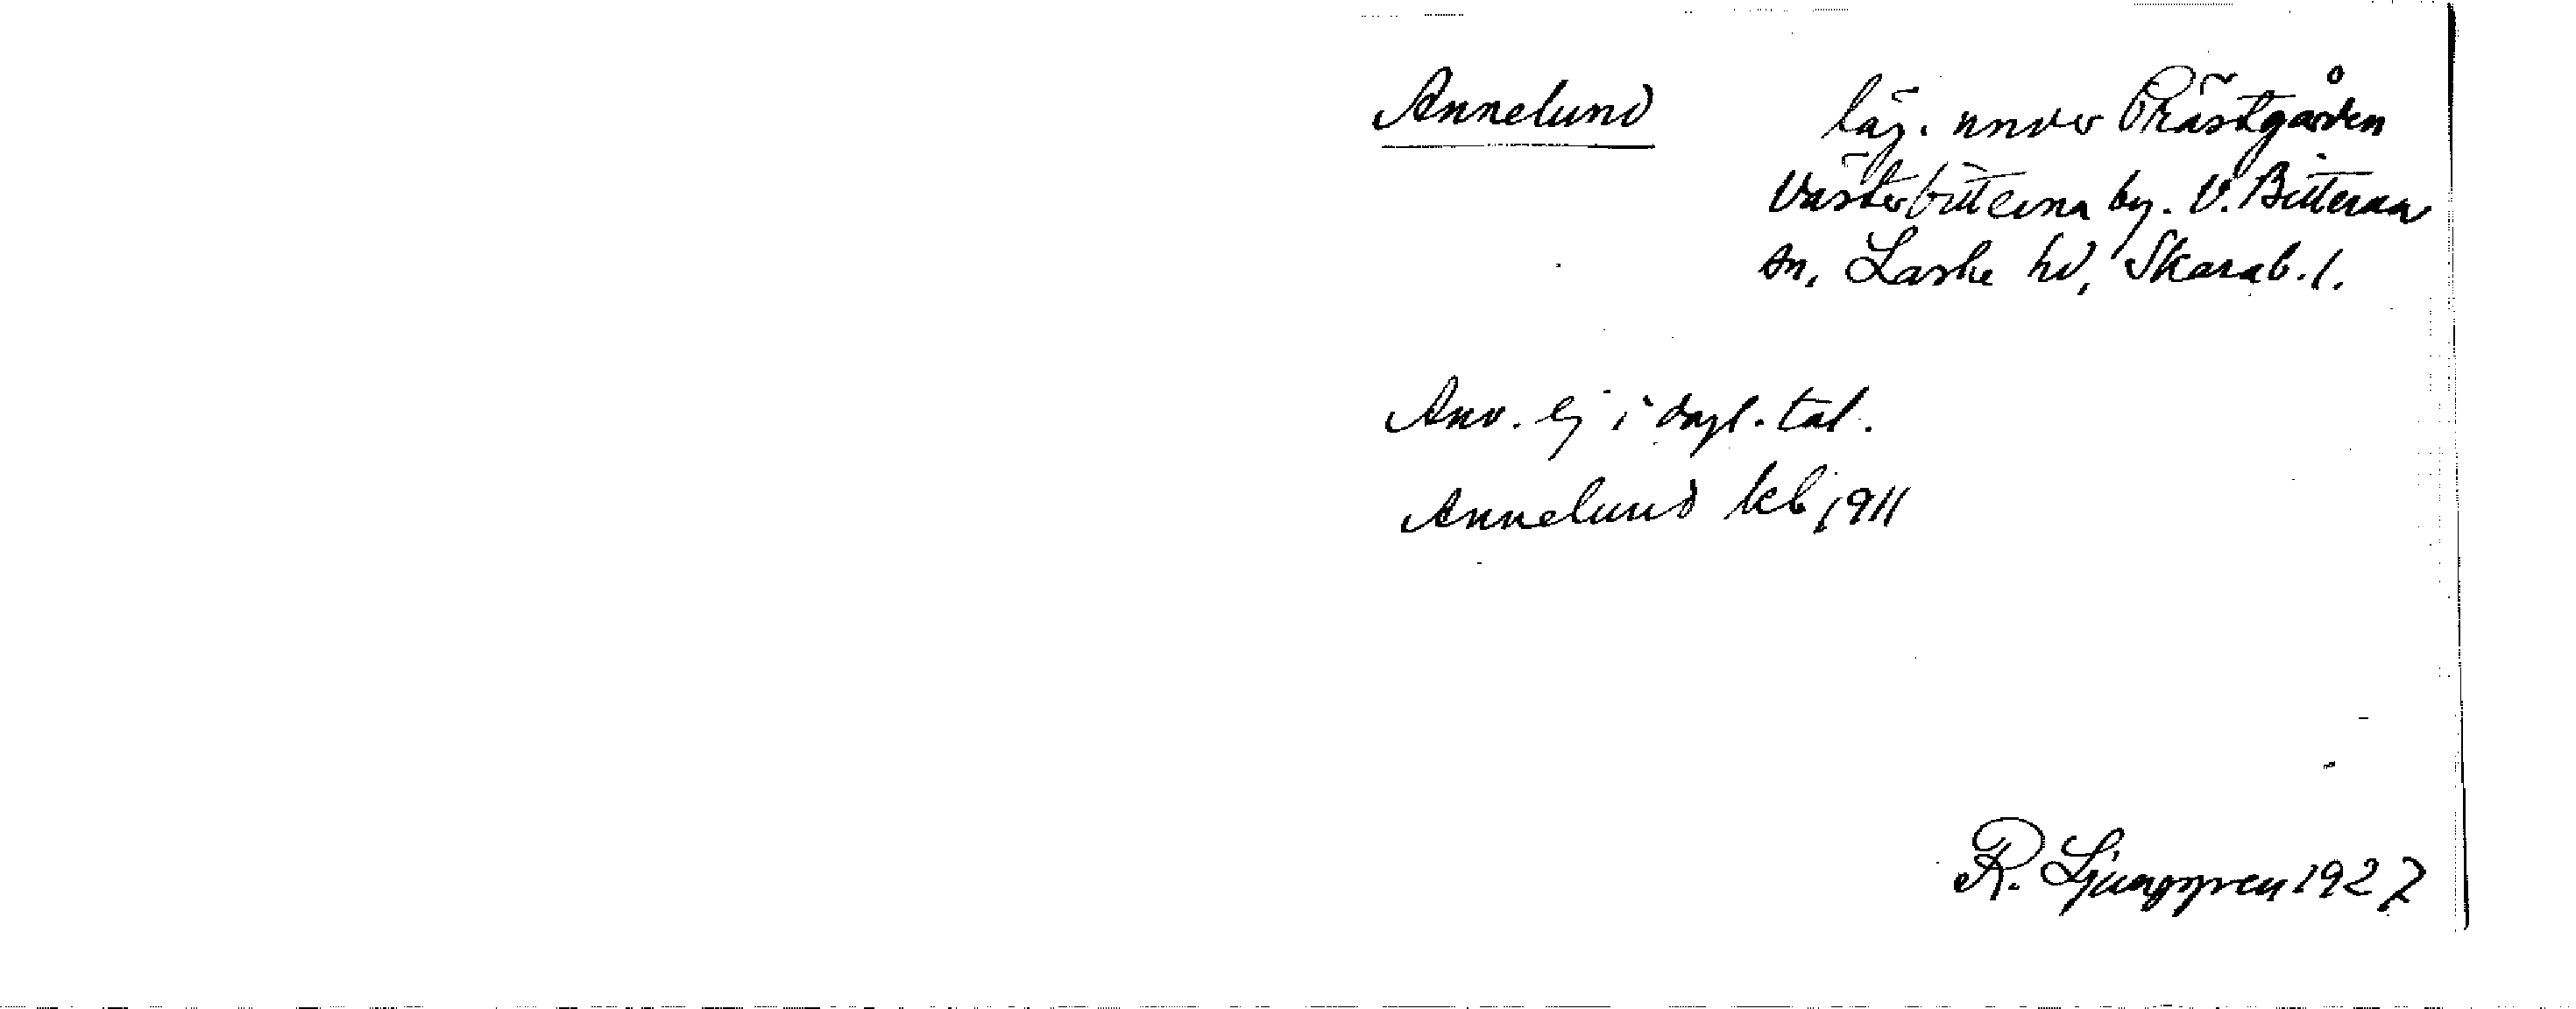 Annelund läg. under Prästgården
Västerbitterna by. V. Bitterna
sn, Laske hd, Skarab. l.
Anv. ej i dagl. tal.
Annelund kb 1911
R. Ljunggren 1927